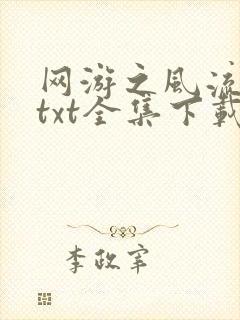 网游之风流
txt全集下载
李政宰